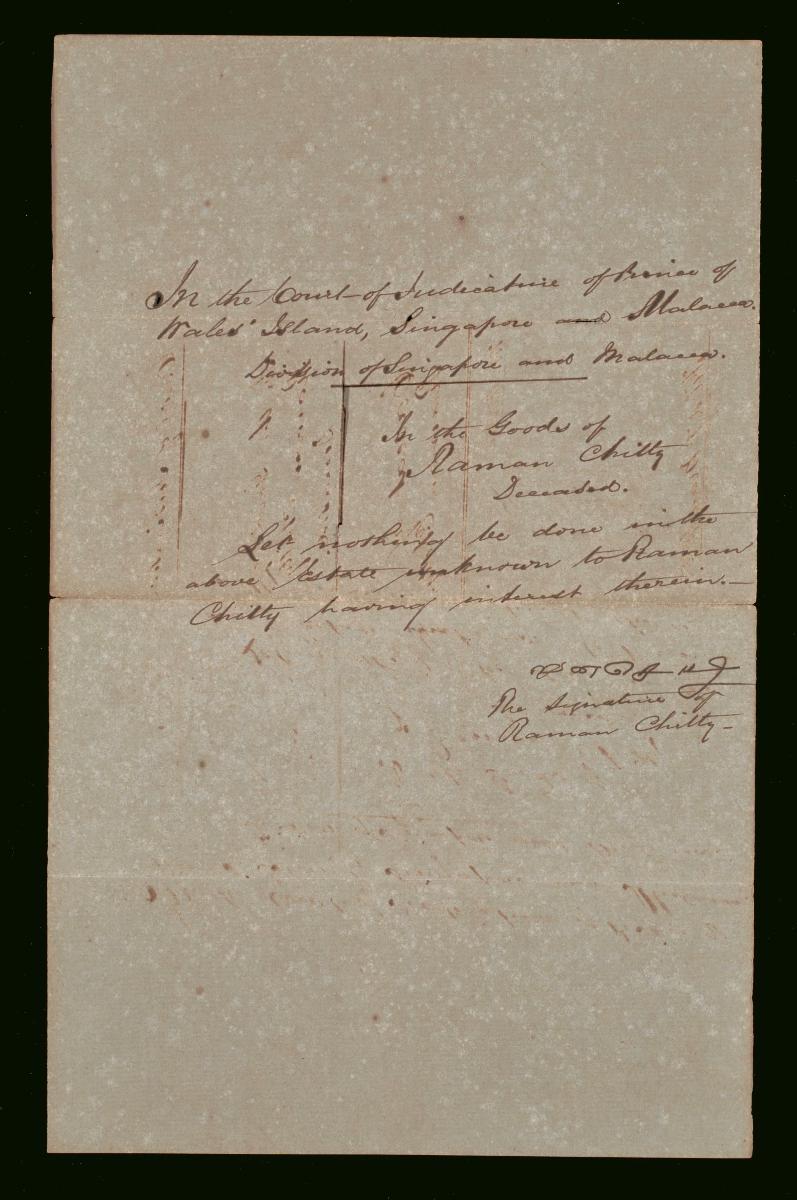 In the Court of Judicature of Prince of
Wales' Island, Singapore and Malacca.
Division of Singapore and Malacca.
In the Goods of
Raman Chitty
Deceased.
Let nothing be done in the
above Estate unknown to Raman
Chitty having interest therein.—
The Signature of
Raman Chitty—